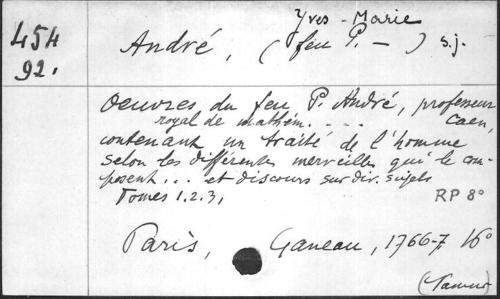 454
92.
Yves-Marie
André, (feu P. —) s.j.
Oeuvres du feu P. André, professeur
royal de mathém. . . . Caen,
contenant un traité de l'homme
selon les différentes merveilles qui le com-
posent... et discours sur div. sujets
Tomes 1.2.3,
RP 8°
Paris, Ganeau, 1766-7, 16°